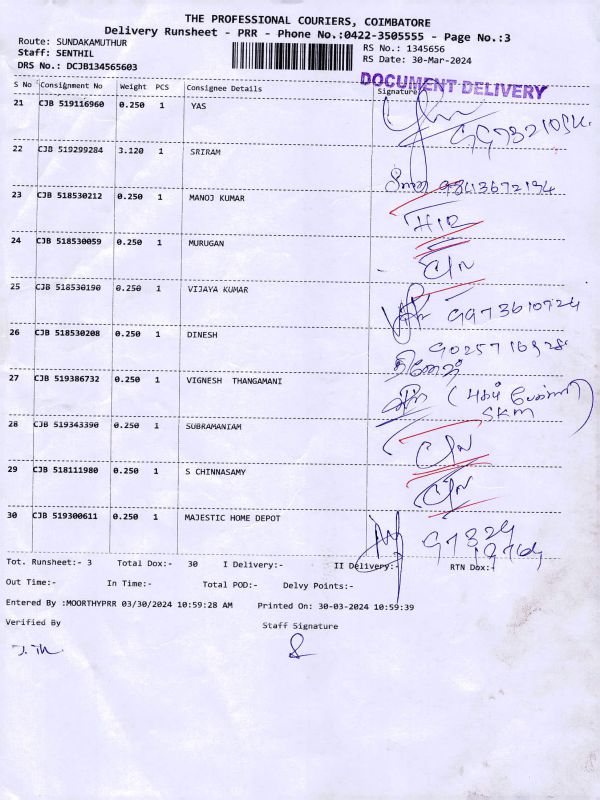 THE PROFESSIONAL COURIERS, COIMBATORE
Delivery Runsheet - PRR - Phone No.:0422-3505555 - Page No.:3
Route: SUNDAKAMUTHUR RS No.: 1345656
Staff: SENTHIL RS Date: 30-Mar-2024
DRS No.: DCJB134565603
DOCUMENT DELIVERY
S No Consignment No Weight PCS Consignee Details Signature
21 CJB 519116960 0.250 1 YAS
22 CJB 519299284 3.120 1 SRIRAM
9843672194
23 CJB 518530212 0.250 1 MANOJ KUMAR
24 CJB 518530059 0.250 1 MURUGAN
C/N
25 CJB 518530190 0.250 1 VIJAYA KUMAR
9973610724
26 CJB 518530208 0.250 1 DINESH
தினேஷ்
27 CJB 519386732 0.250 1 VIGNESH THANGAMANI
SKM
28 CJB 519343390 0.250 1 SUBRAMANIAM
C/N
29 CJB 518111980 0.250 1 S CHINNASAMY
C/N
30 CJB 519300611 0.250 1 MAJESTIC HOME DEPOT
Tot. Runsheet:- 3 Total Dox:- 30 I Delivery:- II Delivery:- RTN Dox:-
Out Time:- In Time:- Total POD:- Delvy Points:-
Entered By :MOORTHYPRR 03/30/2024 10:59:28 AM Printed On: 30-03-2024 10:59:39
Verified By Staff Signature